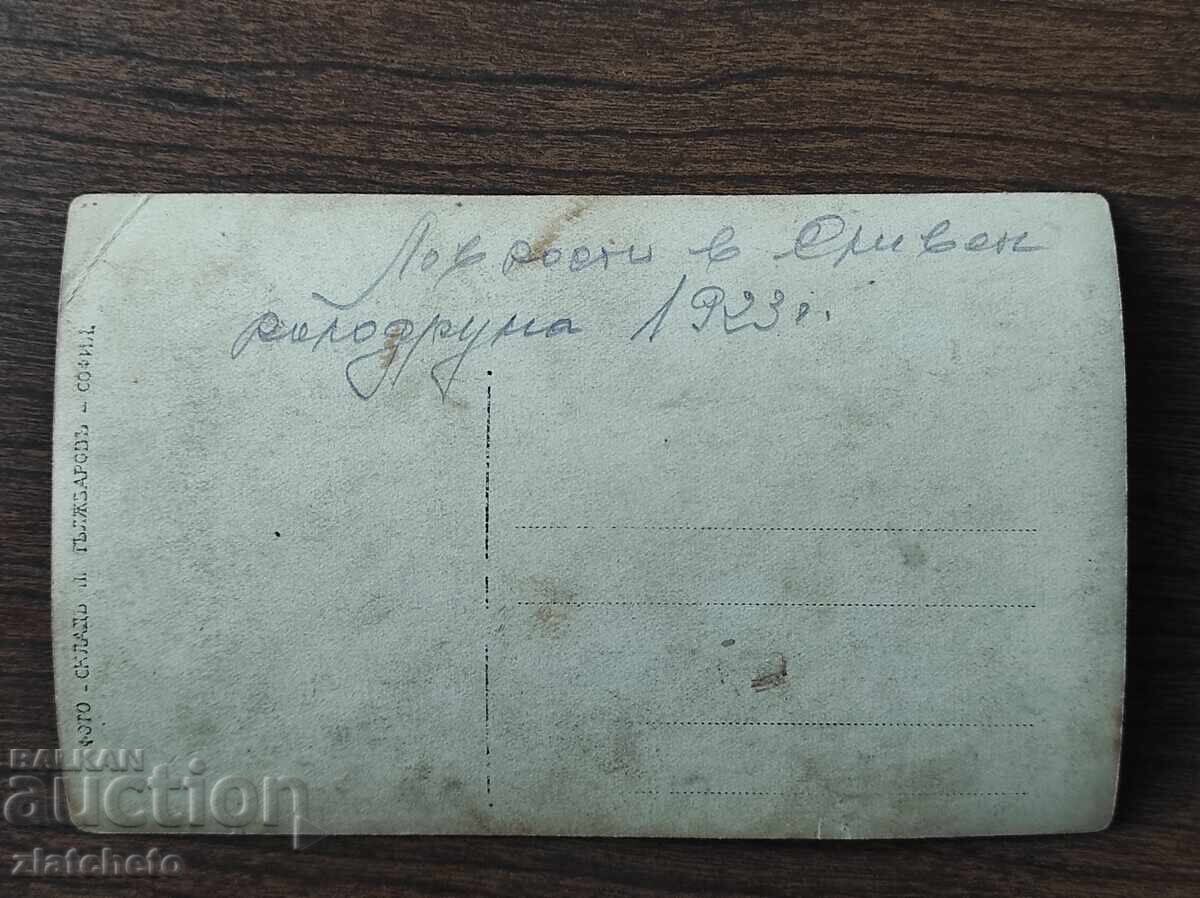 Ловкости в Сливен
колодрума 1923 г.
ФОТО - СКЛАДЪ П. ГЪЛЖБАРОВЪ - СОФИЯ.
BALKAN
auction
zlatcheto